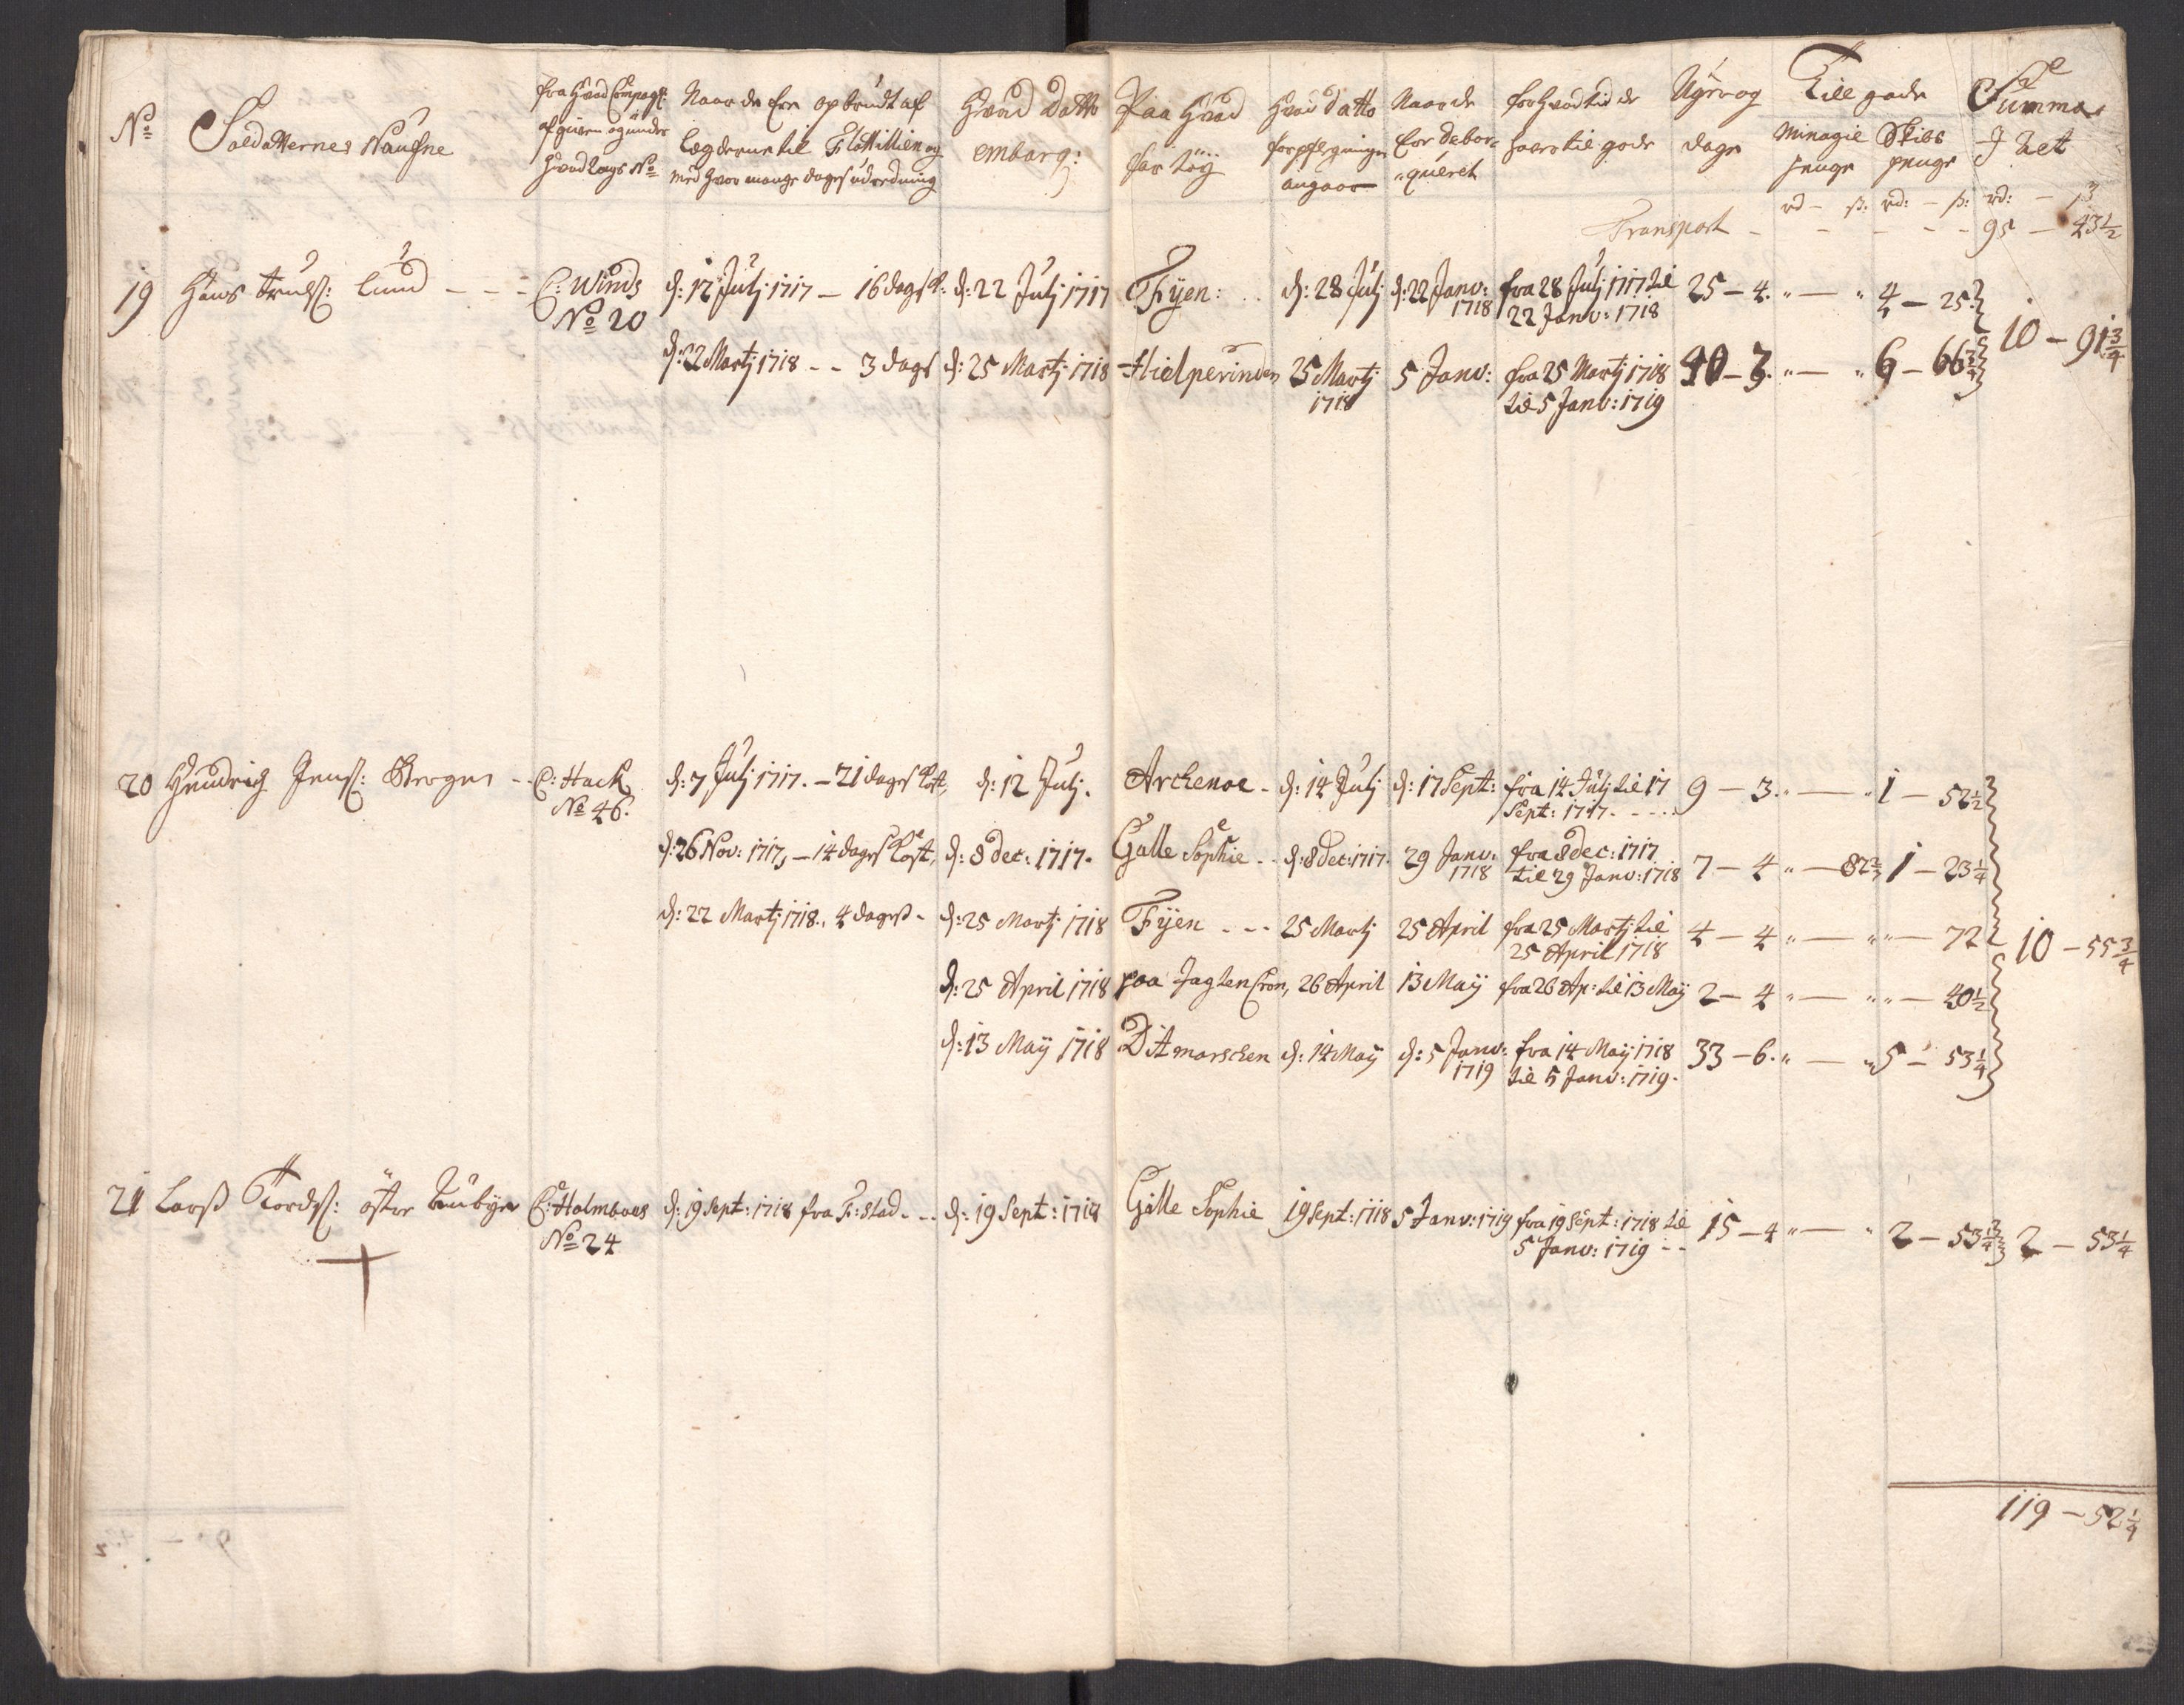 No
Soldatternes Naufne
fra hvad Compagt:
afgiven og under
hvad Lægs No
Naar de ere opbrudt af
Lægderne til Flottillien og
med hvor mange dages udredning
Hvad Datto
embarq:
Paa hvad
far tøÿ
Hvad datto
forpflegningen
angaar
Naar de
ere debar=
"queret
for hvad tid de
haver til gode
Uger og
dage
Till gode
Minagie penge
Skibs penge
Summa
I Let
rd - ß: rd: - ß: rd: - ß
Transport - - - - - 95 - 43½
19 Hans Trulß: Lund - - - C: Winds d: 12 Julj 1717 - 16 dags d: 22 Julj 1717 Fÿen: . . d: 28 Julj d: 22 Janv: fra 28 Julj 1717 til 25 - 4. " - " 4 - 25.
No 20 1718 22 Janv: 1718 10 - 91¾
d: 22 Martj 1718 - - 3 dags d: 25 Martj 1718 Hielperinden 25 Martj 5 Janv: fra 25 Martj 1718 40 - 7. " - " 6 - 66¾
1718 til 5 Janv: 1719
20 Hendrich Jenß: Bregen - - C: Hack d: 7 Julj 1717. - 21 dages Kost, d: 12 Julj. Archenoe - d: 14 Julj d: 17 Sept: fra 14 Julj til 17 9 - 3. " - " 1 - 52½
No 46. Sept: 1717. - - - -
d: 26 Nov: 1717, - 14 dages Kost, d: 8 dec: 1717. Galle Sophie - - d: 8 dec: 1717. 29 Janv: fra 8 dec: 1717 7 - 4 " - 82⅔ 1 - 23¼
1718 til 29 Janv: 1718
d: 22 Martj 1718., 4 dages - d: 25 Martj 1718 Fÿen - - - 25 Martj 25 April fra 25 Martj til 4 - 4 " - " " - 72 10 - 55¾
25 April 1718
d: 25 April 1718 paa Jagten Cron, 26 April 13 Maÿ fra 26 Ap: til 13 Maÿ 2 - 4 " - " " - 40½
d: 13 Maÿ 1718 Ditmarschen d: 14 Maÿ d: 5 Janv: fra 14 Maÿ 1718 33 - 6. " - " 5 - 53¼
1719 til 5 Janv: 1719.
21 Larß Tordß: øster C: Holmboes d: 19 Sept: 1718 fra F: stad - - d: 19 Sept: 1718 Galle Sophie 19 Sept: 1718 5 Janv: 1719 fra 19 Sept: 1718 til 15 - 4 " - " 2 - 53¼ 2 - 53¼
No 24 5 Janv: 1719 - -
119 - 52¼